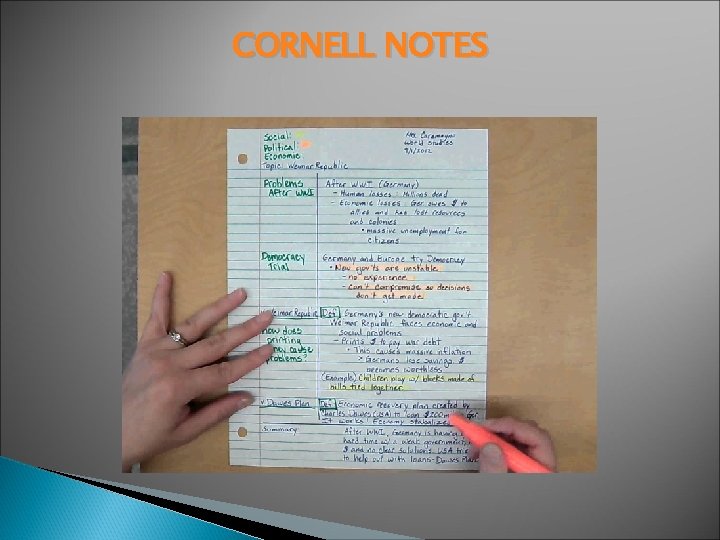 CORNELL NOTES
Social:
Political:
Economic
World Studies
Topic: Weimar Republic
Problems After WWI
After WWI (Germany)
- Human losses: Millions dead
- Economic losses: Ger owes $ to
allies and has lost resources
and colonies
• massive unemployment for
citizens
Democracy Trial
Germany and Europe try Democracy
• New gov'ts are unstable
- no experience
- Can't compromise so decisions
don't get made
Weimar Republic
[Def] Germany's new democratic gov't.
Weimar Republic faces economic and
social problems
How does
printing
cause
problems?
- Prints $ to pay war debt
• This caused massive inflation
• Germans lose savings. $
becomes worthless
(Example) Children play w/ blocks made of
bills tied together
Dawes Plan
[Def] Economic recovery plan created by
Charles Dawes (USA) to loan $200
It works! Economy
Summary:
After WWI, Germany is having
hard time w/ a weak government
$ and no clear solutions. USA
to help out with loans - Dawes Plan